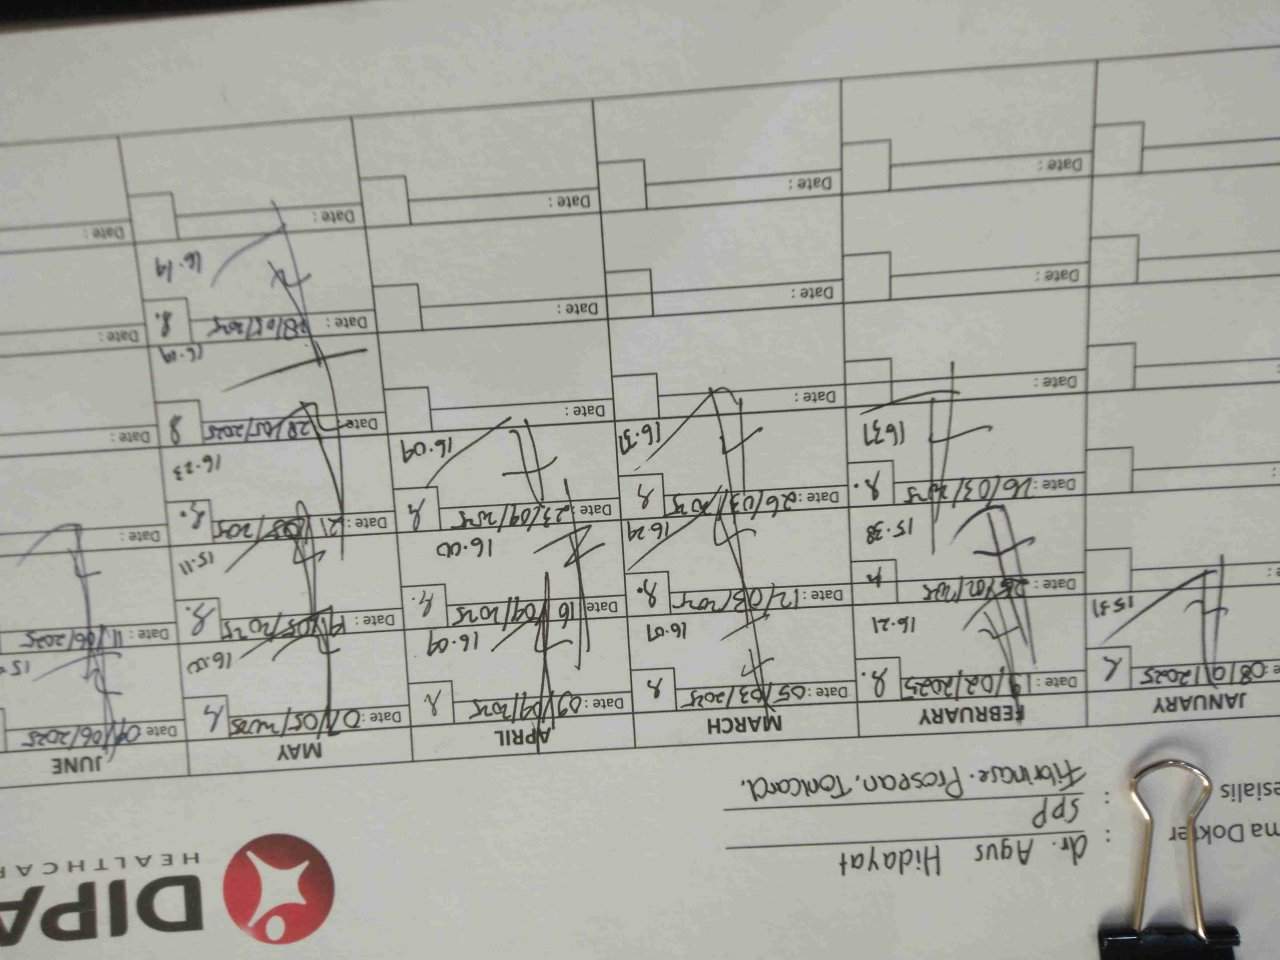 DIPA
HEALTHCAR
ma Dokter : dr. Agus Hidayat
esialis : SPP
Fibrinase. Prospan. Tonicard.
JANUARY FEBRUARY MARCH APRIL MAY JUNE
e: 08/01/2025 Date: 19/02/2025 Date: 05/03/2025 Date: 09/04/2025 Date: 07/05/2025 Date: 04/06/2025
15.31 16.21 16.07 16.09 16.00
e: Date: 25/02/2025 Date: 12/03/2025 Date: 16/04/2025 Date: 19/05/2025 Date: 11/06/2025
15.38 16.29 16.00 15.11
Date: 26/03/2025 Date: 26/03/2025 Date: 23/04/2025 Date: 21/05/2025 Date:
16.31 16.31 16.09 16.23
Date: Date: Date: Date: 28/05/2025 Date:
16.19
Date: Date: Date: Date: 28/05/2025 Date:
16.19
Date: Date: Date: Date: Date: